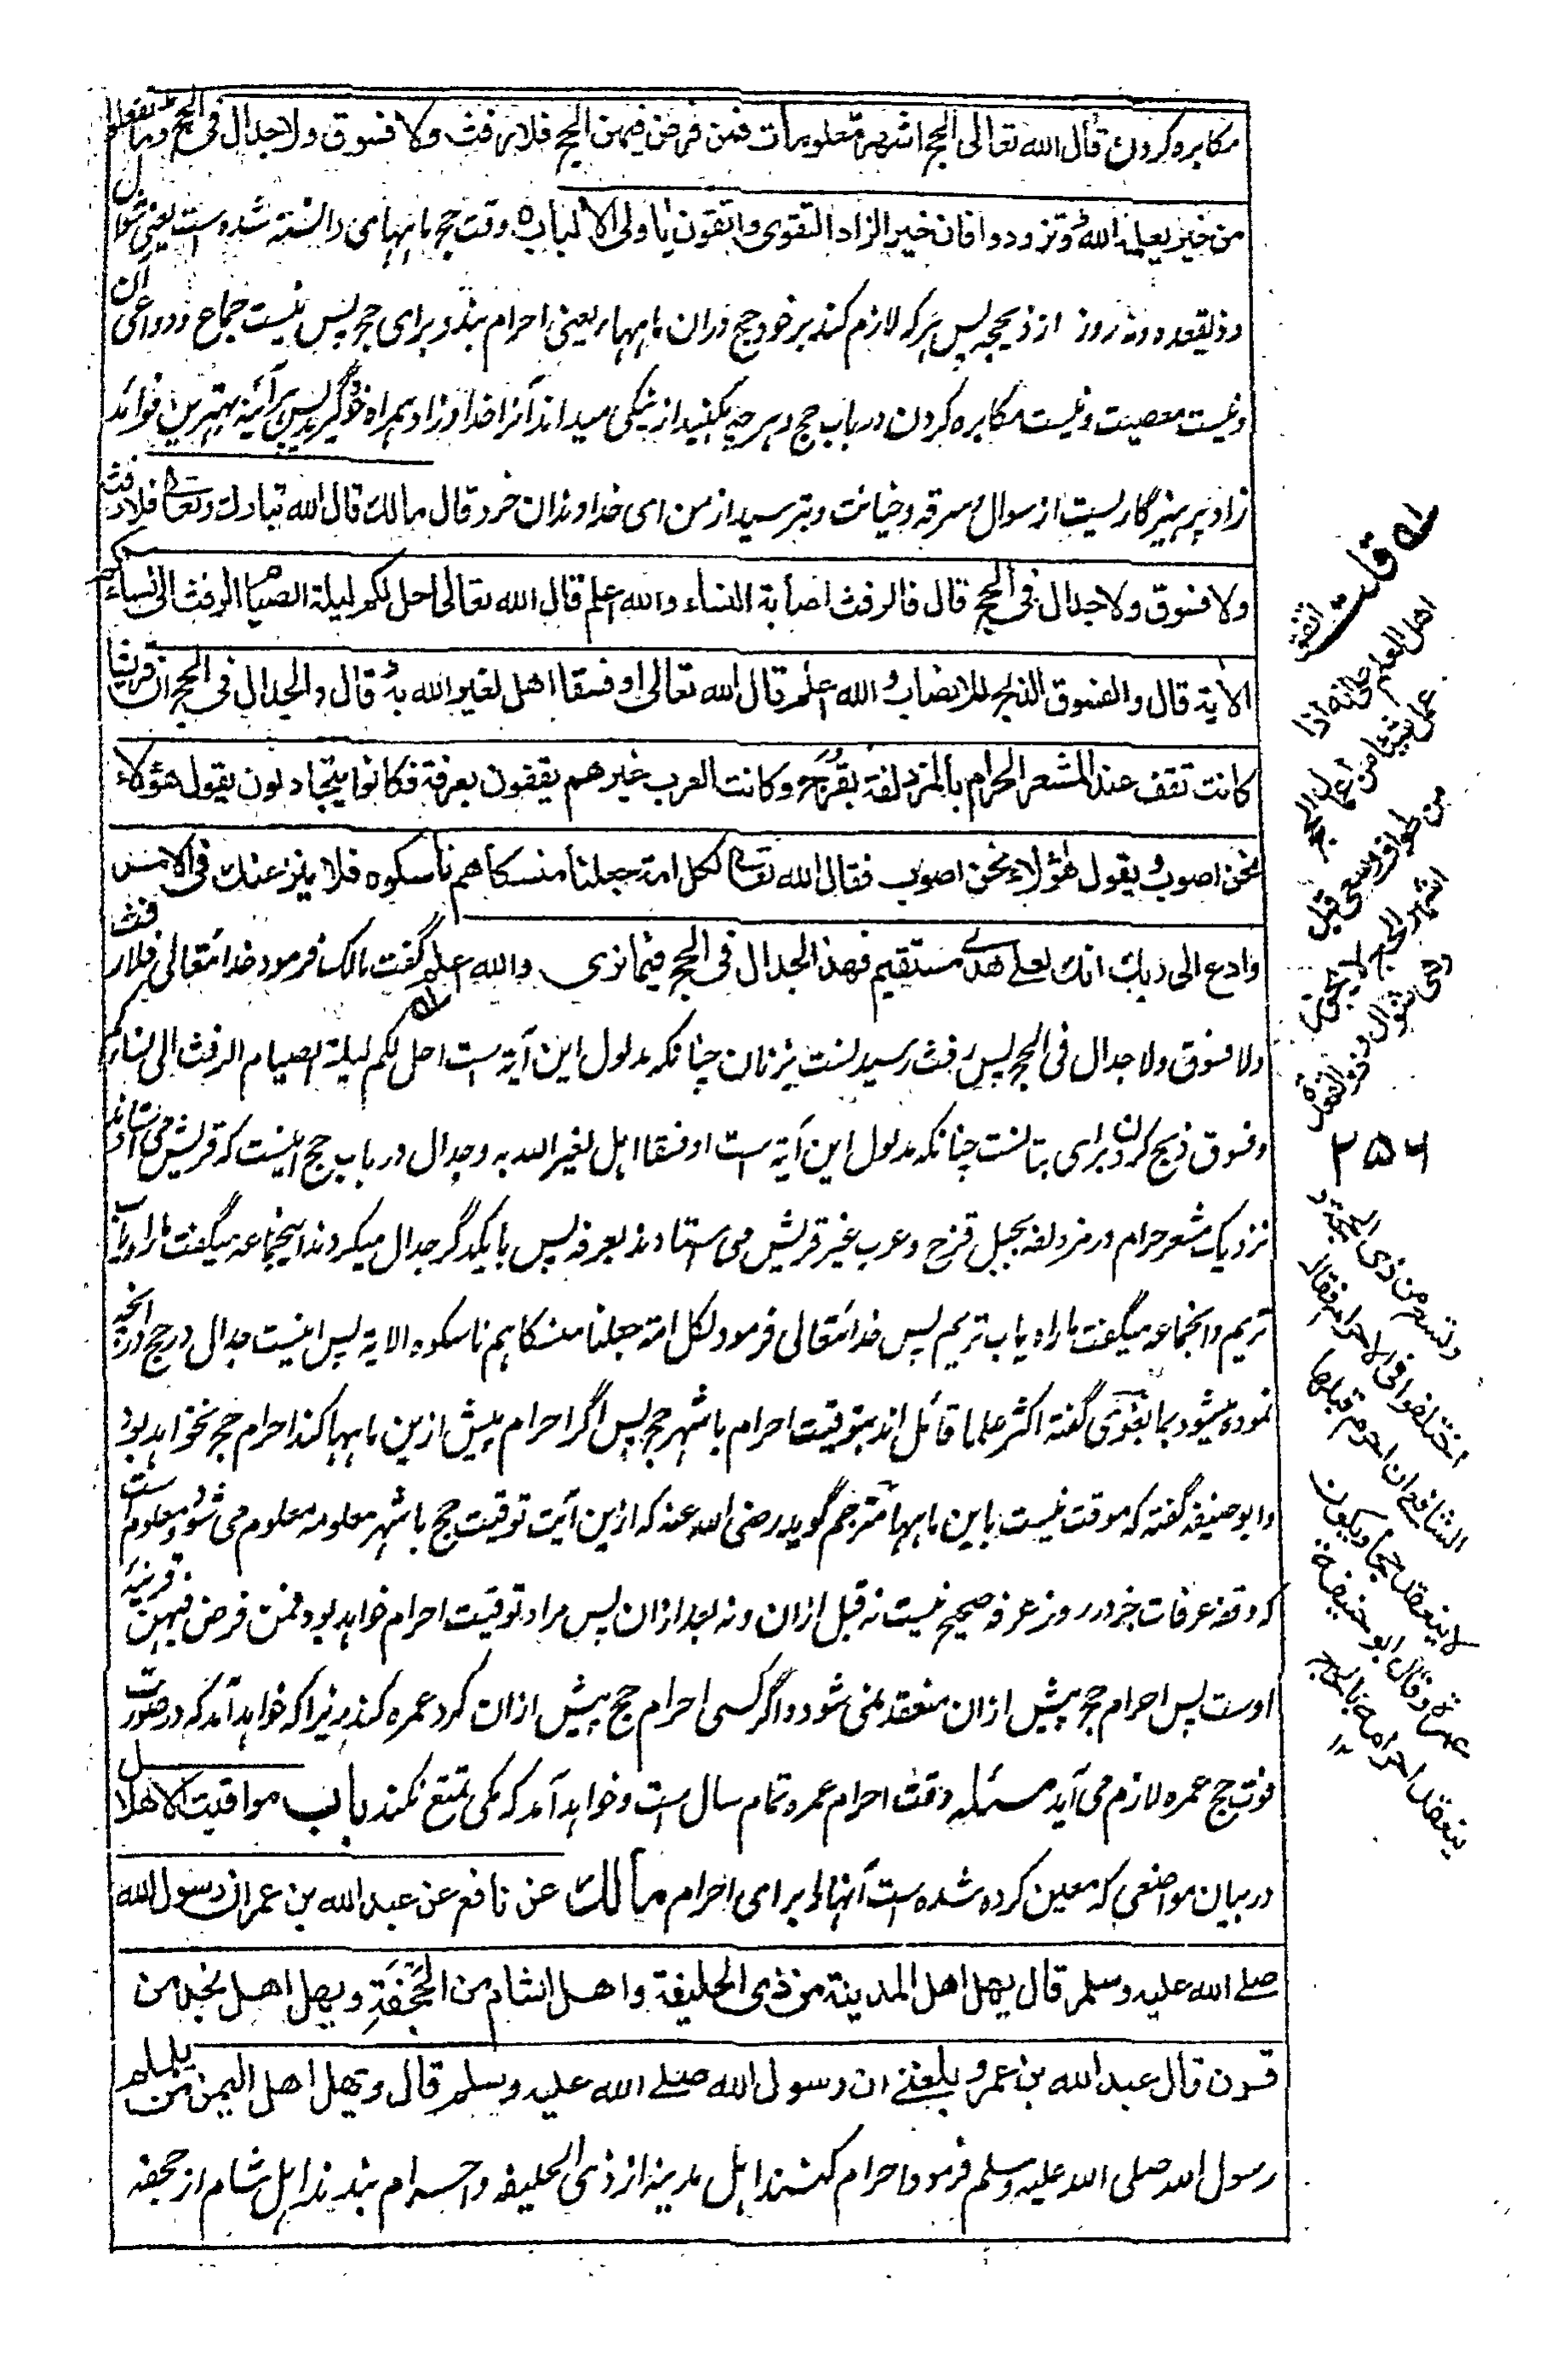 مکابره کردن قال الله تعالی الحج اشهر معلومات فمن فرض فیهن الحج فلا رفث ولا فسوق ولا جدال فی الحج وما تفعلوا
من خیر یعلمه الله وتزودوا فان خیر الزاد التقوی واتقون یاولی الالباب وقت حج ماههای دانسته شده ست یعنی شوال
و ذیقعده و نه روز از ذیحجه پس هر که لازم کند بر خود حج دران ماهها یعنی احرام بندد برای حج پس نیست جماع و دواعی آن
و نیست معصیت و نیست مکابره کردن در باب حج و هر چه بکنید از نیکی میداند آنرا خدا و زاد همراه خود گیرید پس هر آئینه بهترین فوائد
زاد پرهیزگاریست از سوال و سرقه و خیانت و بترسید از من ای خداوندان خرد قال مالک قال الله تبارک وتعالی فلا رفث
ولا فسوق ولا جدال فی الحج قال فالرفث اصابة النساء والله اعلم قال الله تعالی احل لکم لیلة الصیام الرفث الی نسائکم
الایة قال والفسوق الذبح للانصاب والله اعلم قال الله تعالی او فسقا اهل لغیر الله به قال والجدال فی الحج ان قریشا
کانت تقف عند المشعر الحرام بالمزدلفة بقزح وکانت العرب غیرهم یقفون بعرفة فکانوا یتجادلون یقول هؤلاء
نحن اصوب ویقول هؤلاء نحن اصوب فقال الله تعالی لکل امة جعلنا منسکا هم ناسکوه فلا ینازعنک فی الامر
وادع الی ربک انک لعلی هدی مستقیم فهذا الجدال فی الحج فیما نری والله اعلم گفت مالک فرمود خدا تعالی فلا رفث
ولا فسوق ولا جدال فی الحج پس رفث رسیدنست بزنان چنانکه مدلول این آیة ست احل لکم لیلة الصیام الرفث الی نسائکم
و فسوق ذبح کردن برای بتانست چنانکه مدلول این آیة ست او فسقا اهل لغیر الله به و جدال در باب حج اینست که قریش می استادند
نزدیک مشعر حرام در مزدلفه بجبل قزح و عرب غیر قریش می استادند بعرفه پس با یکدگر جدال میکردند اینجماعه میگفت ما راه یاب
تریم و آنجماعه میگفت ما راه یاب تریم پس خدا تعالی فرمود لکل امة جعلنا منسکا هم ناسکوه الایة پس اینست جدال در حج در آنچه
نموده میشود بما بغوی گفته اکثر علما قائل اند بتوقیت احرام باشهر حج پس اگر احرام پیش ازین ماهها کند احرام حج نخواهد بود
و ابو حنیفه گفته که موقت نیست باین ماهها مترجم گوید رضی الله عنه که ازین آیت توقیت حج باشهر معلومه معلوم می شود و معلوم ست
که وقفه عرفات جز در روز عرفه صحیح نیست نه قبل ازان و نه بعد ازان پس مراد توقیت احرام خواهد بود فمن فرض فیهن قرینه
اوست پس احرام حج پیش ازان منعقد نمی شود و اگر کسی احرام حج پیش ازان کرد عمره کند زیرا که خواهد آمد که در صورت
فوت حج عمره لازم می آید مسئله وقت احرام عمره تمام سال ست و خواهد آمد که مکی تمتع نکند باب مواقیت الاهلال
در بیان مواضعی که معین کرده شده ست آنها را برای احرام مالک عن نافع عن عبد الله بن عمر ان رسول الله
صلی الله علیه وسلم قال یهل اهل المدینة من ذی الحلیفة واهل الشام من الجحفة ویهل اهل نجد من
قرن قال عبد الله بن عمر وبلغنی ان رسول الله صلی الله علیه وسلم قال ویهل اهل الیمن من یلملم
رسول الله صلی الله علیه وسلم فرمود احرام کنند اهل مدینه از ذی الحلیفه و احرام بندند اهل شام از جحفه
له قلت اتفق
اهل العلم علی انه اذا
عمل شیئا من اعمال الحج
من طواف وسعی قبل
اشهر الحج لا یجزئ
وهی شوال وذوالقعدة
۲۵۶
وتسع من ذی الحجة و
اختلفوا فی الاحرام فقال
الشافعی ان احرم قبلها
لا ینعقد حجا ویکون
عمرة وقال ابو حنیفة
ینعقد احرامه بالحج
۱۲